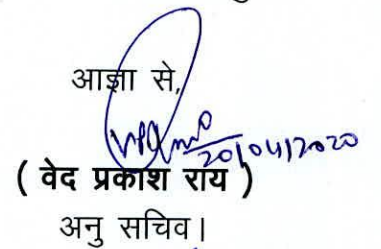 आज्ञा से,
20/04/2020
( वेद प्रकाश राय )
अनु सचिव।